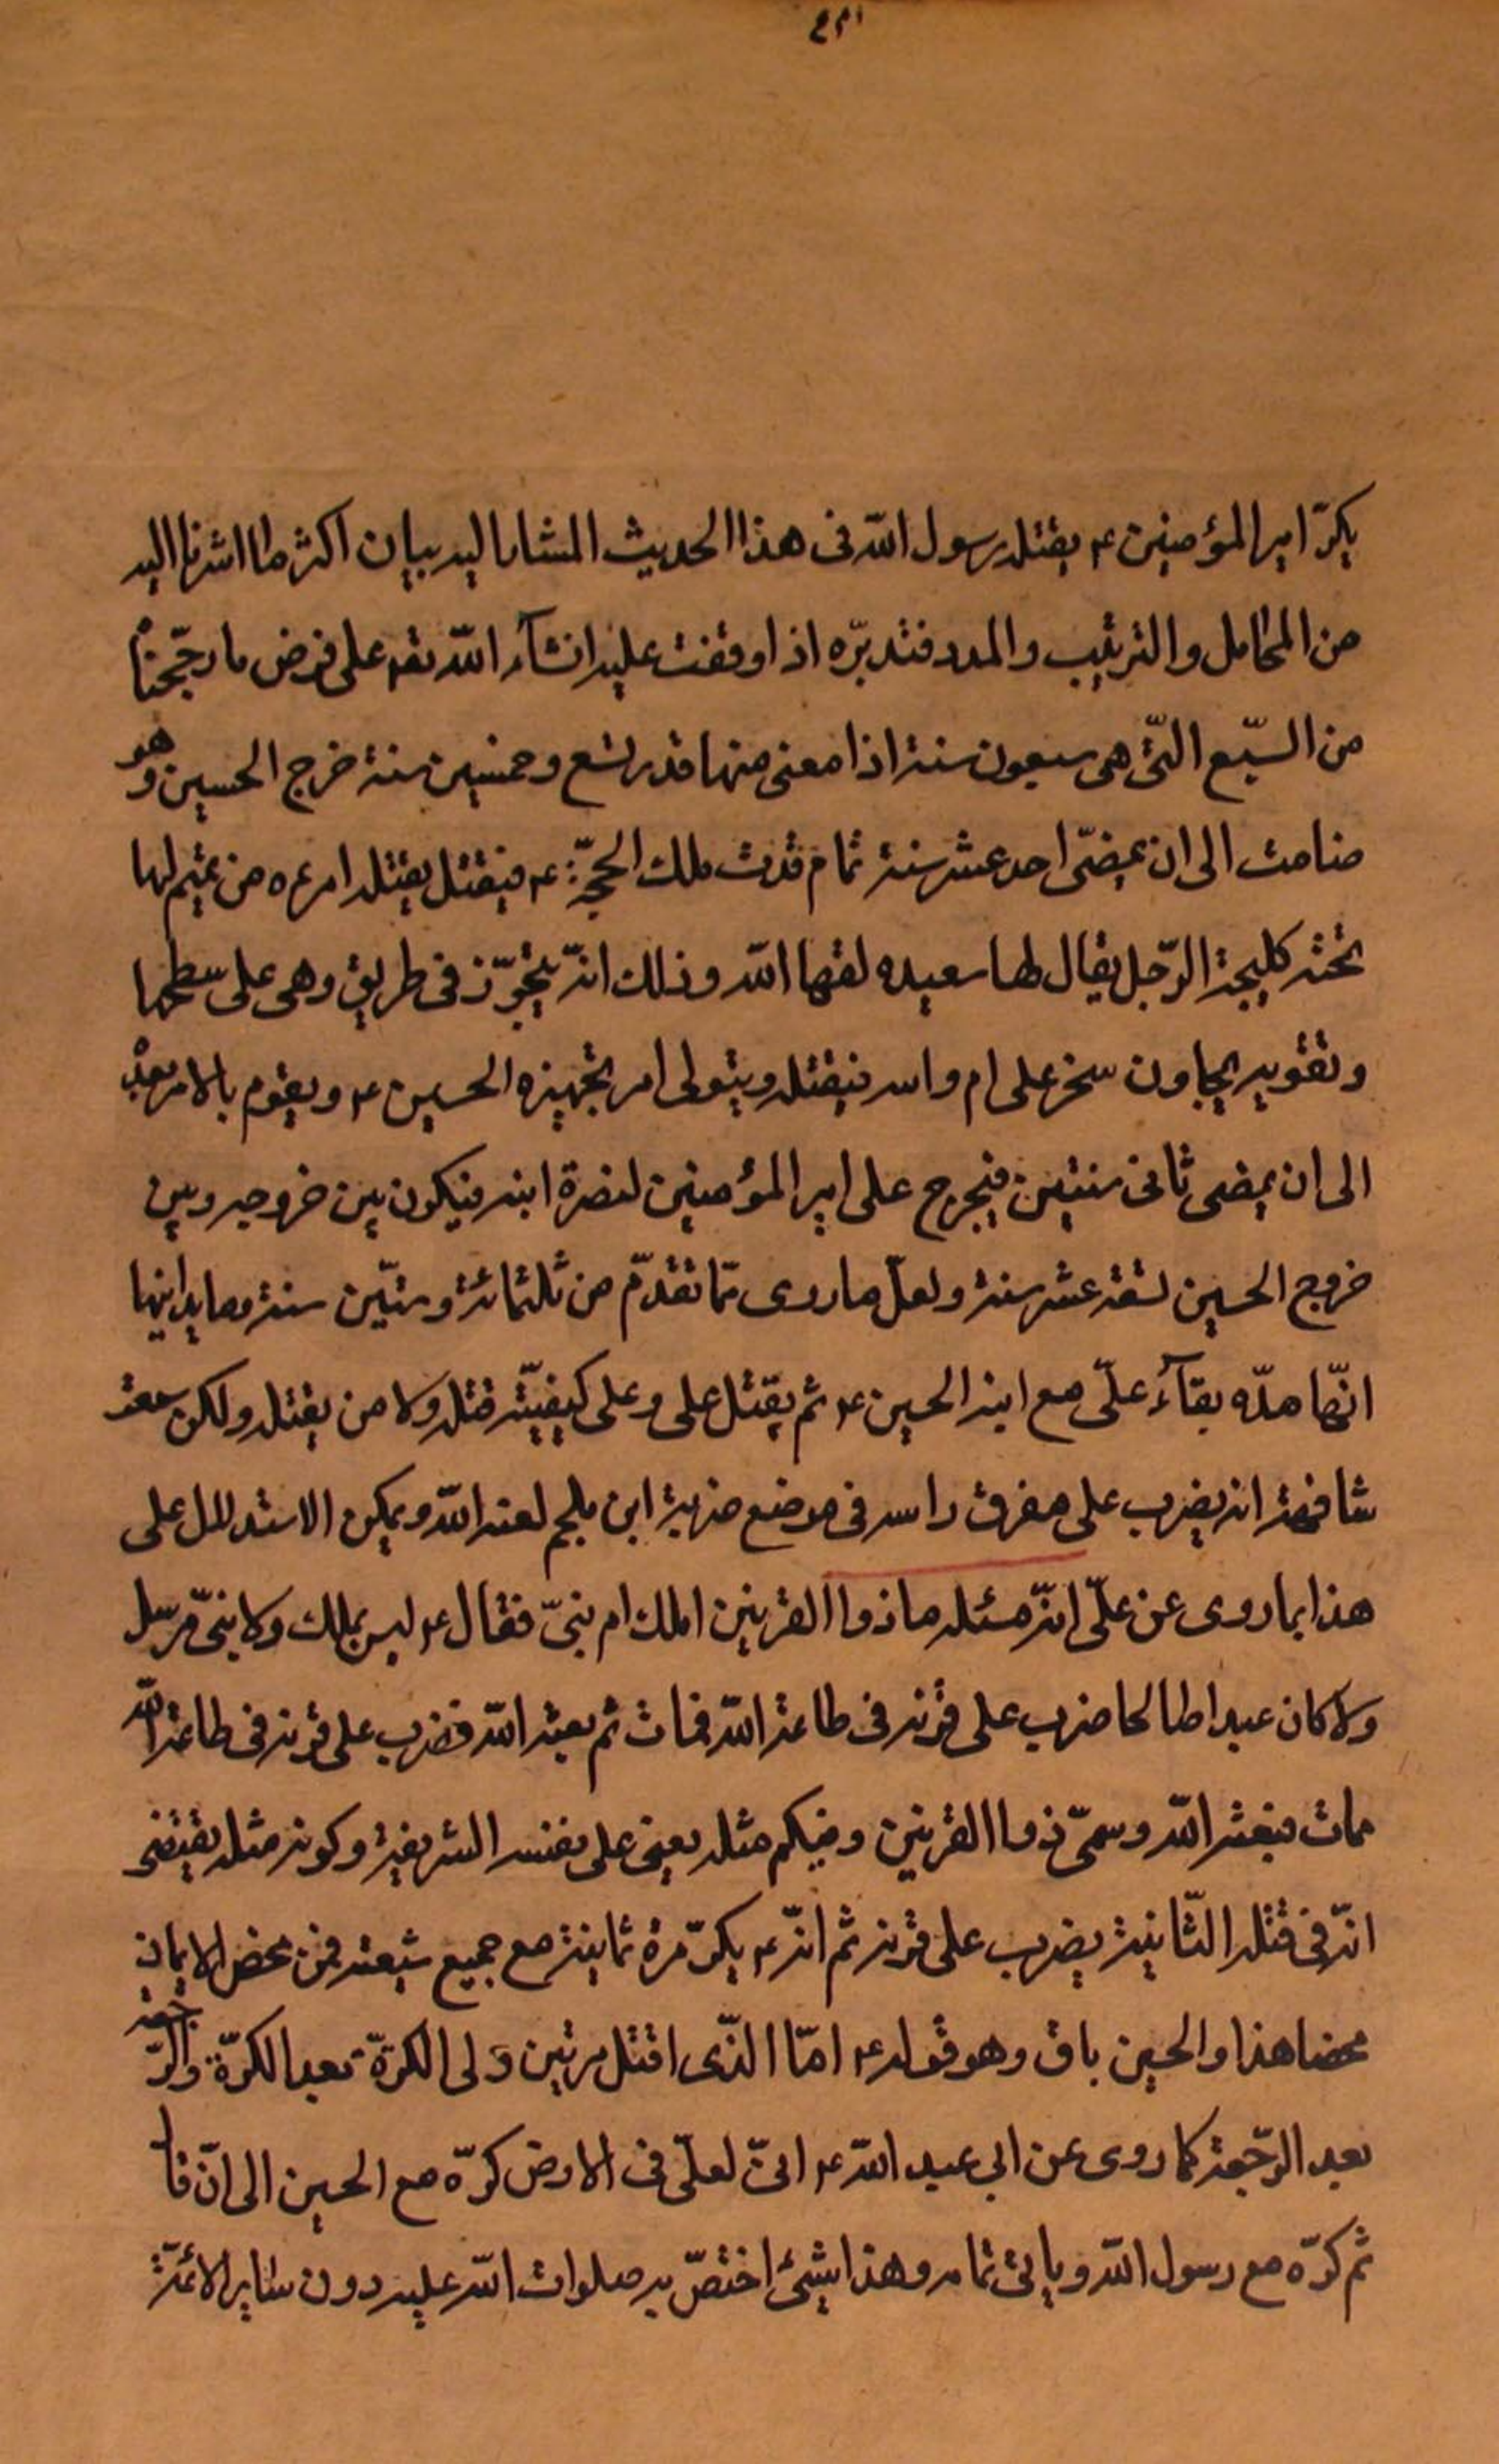 يكرّ امير المؤمنين ع بقتله رسول الله فى هذا الحديث المشار اليه بيان اكثر ما اشرنا اليه
من المحامل والترتيب والمدد فتدبّره اذا وقفت عليه انشآء الله تعه على فرض ما رجّحناه
من السّبع الّتى هى سبعون سنة اذا مضى منها قدر تسع وخمسين سنة خرج الحسين وهو
صامت الى ان يمضى احد عشر سنة تمام مدّت ملك الحجّة ع فيقتل يقتله امرءه من تميم لها
لحية كلحية الرّجل يقال لها سعيده لعنها الله وذلك انّه يتجوّز فى طريق وهى على سطحها
وتقويه بجاون صخر على ام راسه فيقتله ويتولى امر تجهيزه الحسين ع ويقوم بالامر بعده
الى ان يمضى ثمانى سنين فيخرج على امير المؤمنين لنصرة ابنه فيكون بين خروجه وبين
خروج الحسين تسعة عشر سنة ولعلّ ما روى ممّا تقدّم من ثلثمائة وستّين سنة وما يدانيها
انّها مدّه بقآء علّى مع ابنه الحسين ع ثم يقتل على وعلى كيفيّة قتله ولا من يقتله ولكن سمعته
شافهة انه يضرب على مفرق راسه فى موضع ضربة ابن ملجم لعنه الله ويمكن الاستدلال على
هذا بما روى عن علّى انّه سئله ما ذوا القرنين املك ام نبىّ فقال ع ليس بملك ولا نبىّ مرسل
ولا كان عبدا صالحا ضرب على قرنه فى طاعة الله فمات ثم بعثه الله فضرب على قرنه فى طاعة الله
مات فبعثه الله وسمّى ذوا القرنين وفيكم مثله يعنى على بنفسه الشريفة وكونه مثله يقتضى
انّه فى قتله الثّانية يضرب على قرنه ثم انّه ع يكرّ مرة ثانية مع جميع شيعته فمن محض الايمان
محضا هذا والحسين باق وهو قوله ع امّا الّذى اقتل مرتين ولى الكرّة بعد الكرّة والرّجعة
بعد الرّجعة كما روى عن ابى عبد الله ع انّ لعلّى فى الارض كرّه مع الحسين الى ان قال
ثم كرّه مع رسول الله وياتى تمامه وهذا شيئ اختصّ به صلوات الله عليه دون ساير الائمّة